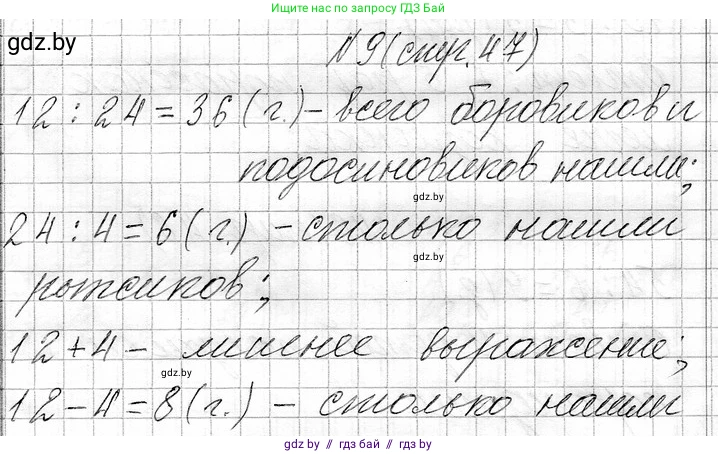 Ищите нас по запросу ГДЗ Бай
gdz.by
N 9 (стр. 47)
12 : 24 = 36 (г.) - всего боровиков и
подосиновиков нашли;
gdz.by
24 : 4 = 6 (г.) - столько нашли
gdz.by
рыжиков;
12 + 4 - лишнее выражение;
gdz.by
12 - 4 = 8 (г.) - столько нашли
gdz.by // гдз бай // гдз by